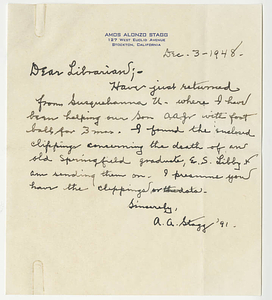 AMOS ALONZO STAGG
127 WEST EUCLID AVENUE
STOCKTON, CALIFORNIA
Dec. 3 - 1948.
Dear Librarian;-
Have just returned
from Susquehanna U. where I have
been helping our son AA Jr with foot
ball for 3 mos. I found the enclosed
clipping concerning the death of an
old Springfield graduate, E. S. Libby &
am sending them on. I presume you
have the clippings or the data.
Sincerely,
A. A. Stagg '91.